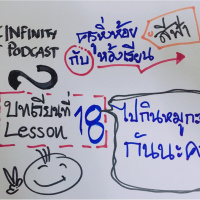 INFINITY
PODCAST
2
ครูหิ่งห้อย
กับ ห้องเรียน
สีฟ้า
บทเรียนที่
Lesson 18
ไปกินหมูกระ
กันนะค